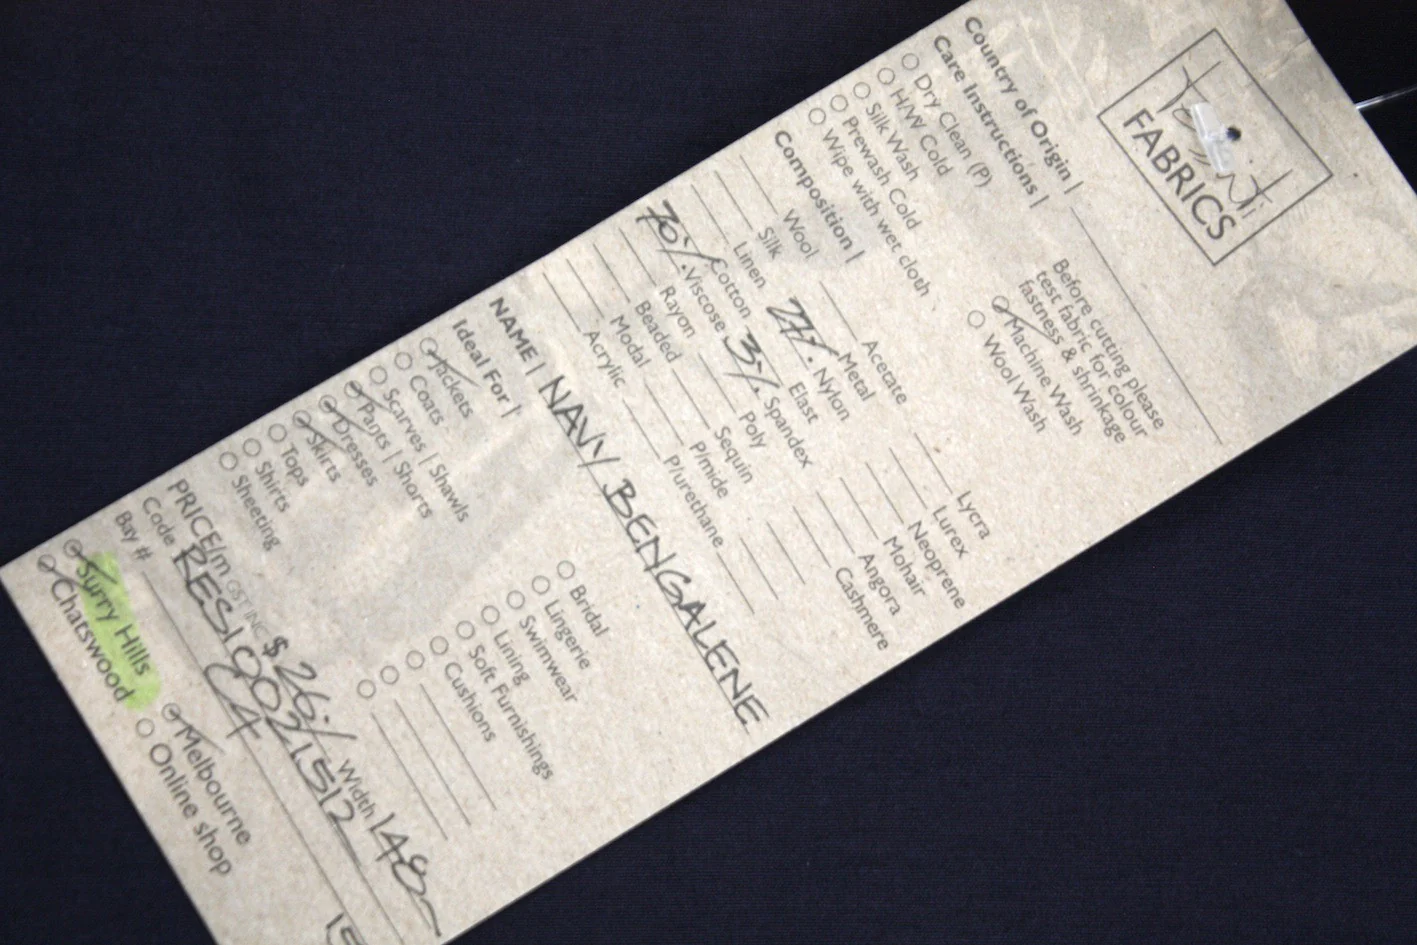 FABRICS
Country of Origin |
Care Instructions |
Dry Clean (P)
H/W Cold
Silk Wash
Prewash Cold
Wipe with wet cloth
Before cutting please
test fabric for colour
fastness & shrinkage
Machine Wash
Wool Wash
Composition |
Wool
Silk
Linen
Cotton
70% Viscose
Rayon
Beaded
Modal
Acrylic
Acetate
Metal
27% Nylon
Elast
3% Spandex
Poly
Sequin
P/mide
P/urethane
Lycra
Lurex
Neoprene
Mohair
Angora
Cashmere
NAME | NAVY BENGALENE
Ideal For |
Jackets
Coats
Scarves | Shawls
Pants | Shorts
Dresses
Skirts
Tops
Shirts
Sheeting
Bridal
Lingerie
Swimwear
Lining
Soft Furnishings
Cushions
PRICE/m GST INC $ 26./ Width 148
Code RES10021512
Bay # C4
Surry Hills
Chatswood
Melbourne
Online shop